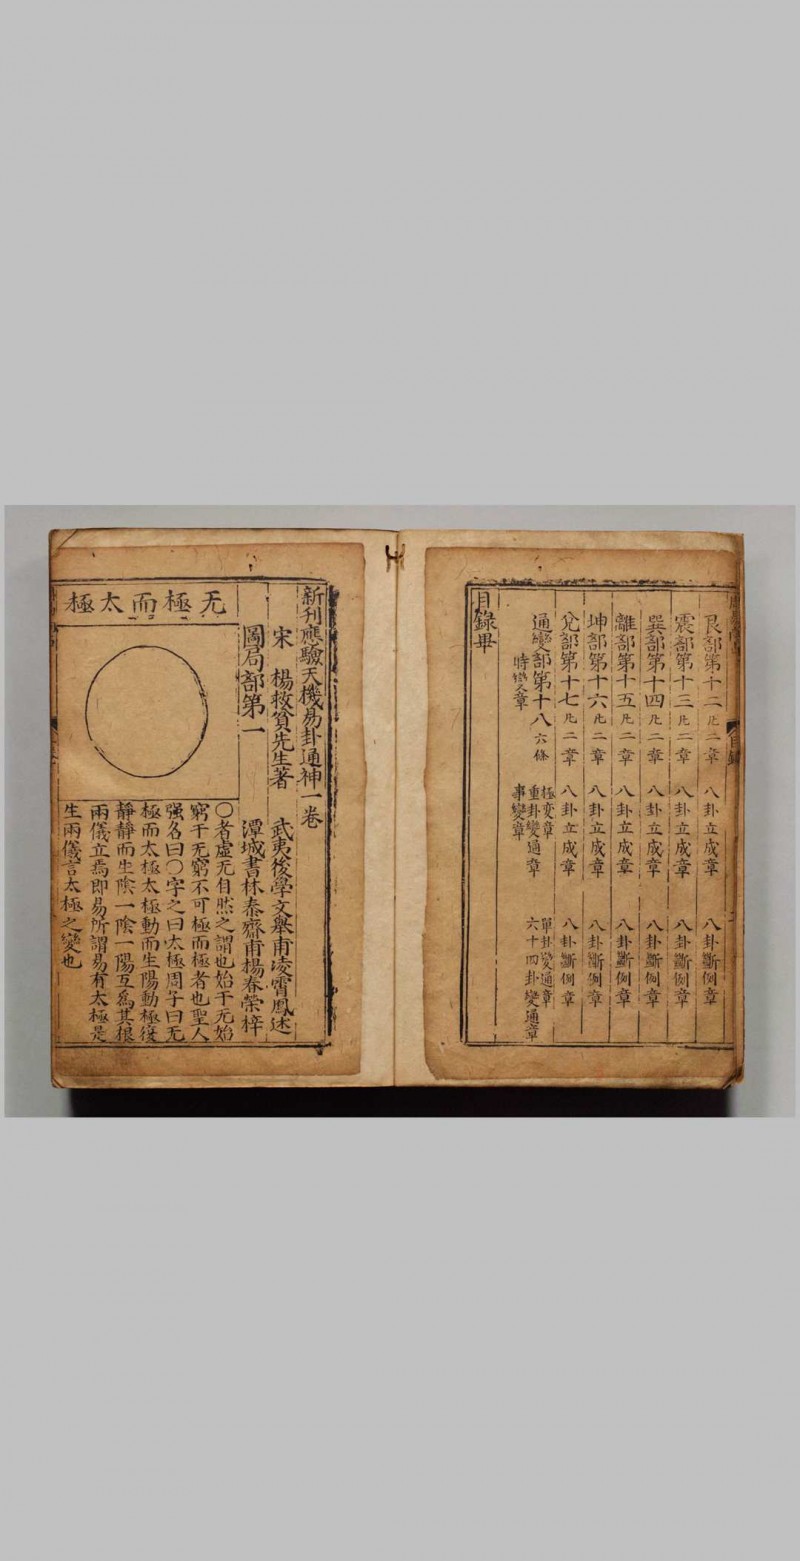 艮部第十二 凡二章 八卦立成章 八卦斷例章
震部第十三 凡二章 八卦立成章 八卦斷例章
巽部第十四 凡二章 八卦立成章 八卦斷例章
離部第十五 凡二章 八卦立成章 八卦斷例章
坤部第十六 凡二章 八卦立成章 八卦斷例章
兌部第十七 凡二章 八卦立成章 八卦斷例章
通變部第十八 六條 極变章 單卦變通章
重卦變通章 六十四卦變通章
時變章 事變章
目錄畢
新刊應驗天機易卦通神一卷
宋 楊救貧先生著 武夷後學文舉甫凌霄鳳述
潭城書林泰齋甫楊春榮梓
圖局部第一
无極而太極
〇者虛无自然之謂也始于无始
窮于无窮不可極而極者也聖人
强名曰〇字之曰太極周子曰无
極而太極太極動而生陽動極復
靜靜而生陰一陰一陽互爲其根
兩儀立焉即易所謂易有太極是
生兩儀言太極之變也